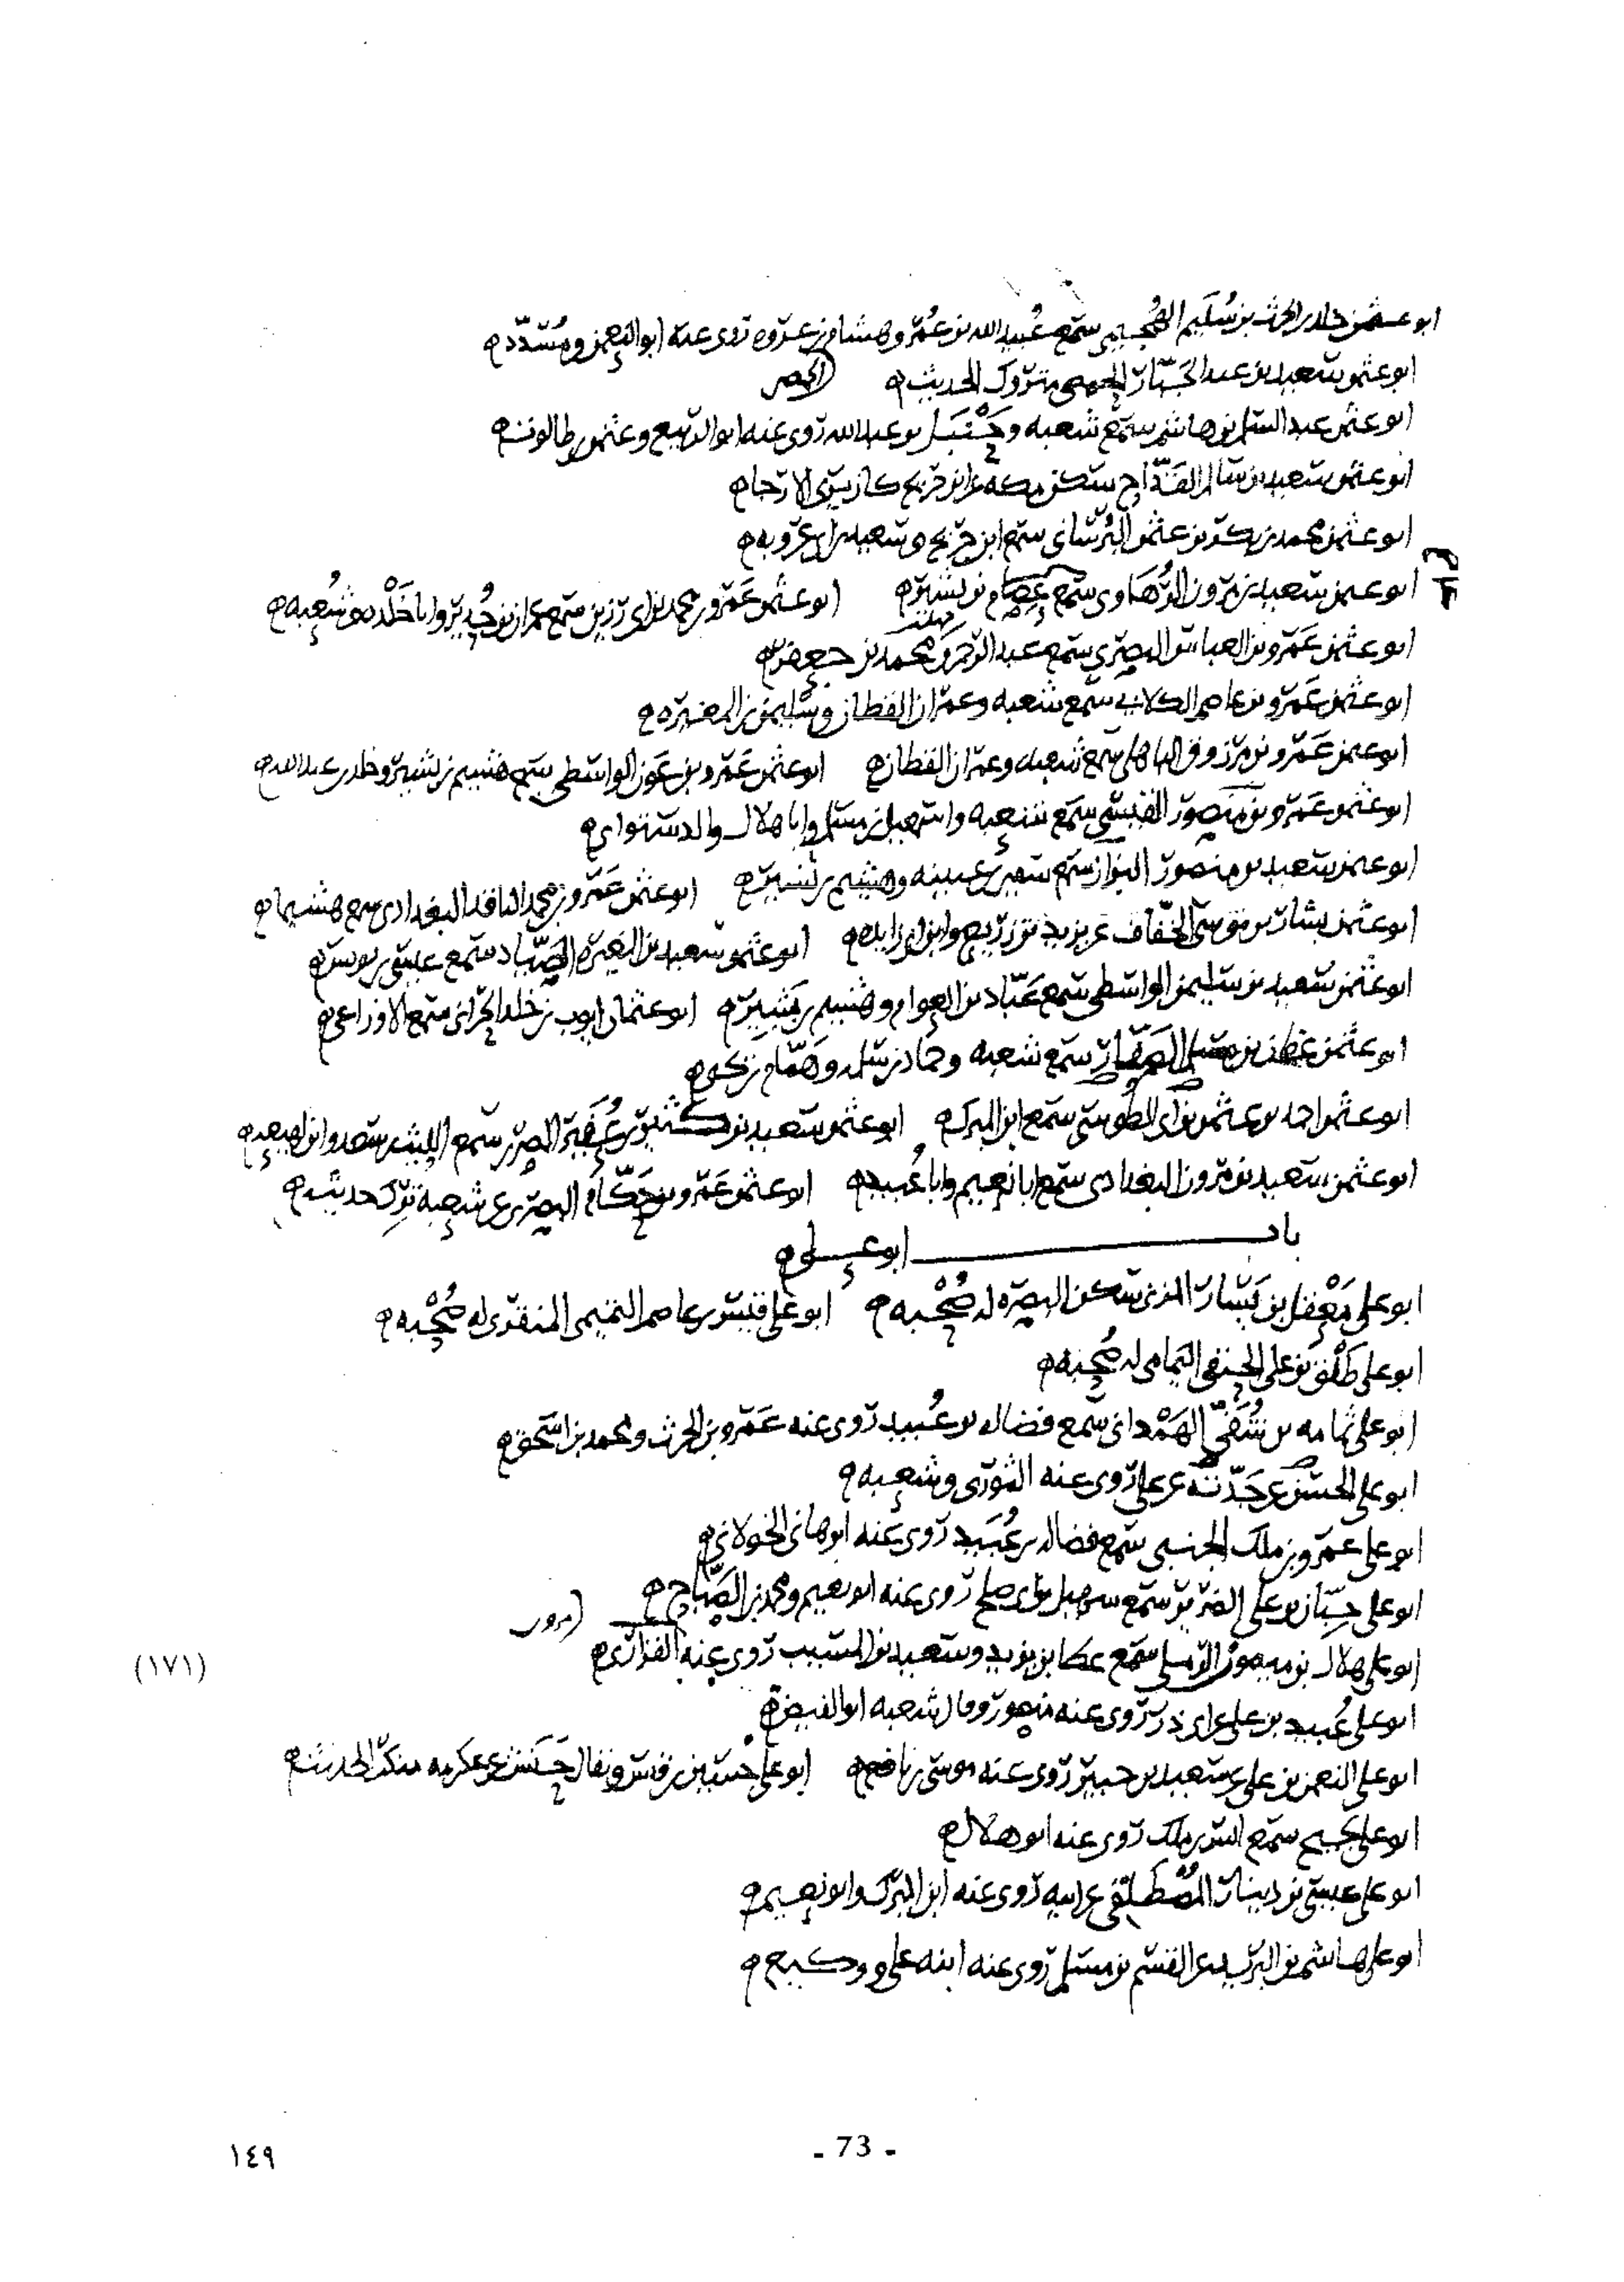 ابو عثمن خلد بن الحرث بن سُلَيم الهُجيمي سمع عُبيد الله بن عُمَر وهشام بن عروه روى عنه ابو النعمن ومُسَدّد
ابو عثمن سعيد بن عبد الجبّار الحمصي متروك الحديث
ابو عثمن عبد السلم بن هاشم سمع شعبه وحَنْبَل بن عبد الله روى عنه ابو الربيع وعثمن بن طالوت
ابو عثمن سعيد بن سالم القدّاح سكن مكه عن ابن جريج كان يرى الارجا
ابو عثمن محمد بن بكر بن عثمن البُرساني سمع ابن جريج وسعيد بن ابي عروبه
ابو عثمن سعيد بن مرون الرُّهَاوي سمع عصام بن بشير ابو عثمن عَمرو بن محمد بن ابي رزين سمع عمران بن حُدير وابا خَلْده وشُعبه
ابو عثمن عَمرو بن العباس البصري سمع عبد الرحمن ومحمد بن جعفر
ابو عثمن عَمرو بن عاصم الكلابي سمع شعبه وعمران القطان وسليمن بن المغيره
ابو عثمن عَمرو بن مرزوق الباهلي سمع شعبه وعمران القطان ابو عثمن عَمرو بن عَون الواسطي سمع هشيم بن بشير وخلد بن عبد الله
ابو عثمن عَمرو بن منصور القيسي سمع شعبه واسمعيل بن مسلم وابا هلال والدستوائي
ابو عثمن سعيد بن منصور سمع بن عيينه وهشيم بن بشير ابو عثمن عَمرو بن محمد الناقد البغدادي سمع هشيما
ابو عثمن بشار بن موسى الخفّاف عن يزيد بن زريع وابن ابي زايده ابو عثمن سعيد بن المغيره الصيّاد سمع عيسى بن يونس
ابو عثمن سعيد بن سليمن الواسطي سمع عَبّاد بن العوام وهشيم بن بشير ابو عثمان ايوب بن خلد الحراني سمع الاوزاعي
ابو عثمن عفان بن مسلم الصفّار سمع شعبه وحماد بن سلمه وهَمّام
ابو عثمن احمد بن عثمن الطوسي سمع ابن المبرك ابو عثمن سعيد بن كثير بن عُفَير المصري سمع الليث بن سعد وابن لهيعه
ابو عثمن سعيد بن مرون البغدادي سمع ابا نعيم وابا عُبيد ابو عثمن عَمرو بن حَكّام البصري عن شعبة تُرك حديثه
باب ابو علي
ابو علي مَعْقل بن يَسار المزني سكن البصره له صُحْبه ابو علي قيس بن عاصم التميمي المنقري له صُحْبه
ابو علي طَلْق بن علي الحنفي اليمامي له صُحبه
ابو علي ثمامه بن شُفَيّ الهَمْداني سمع فضاله بن عُبيد روى عنه عَمرو بن الحرث ومحمد بن اسحق
ابو علي الحسن عن جَدّته عن علي روى عنه الثوري وشعبه
ابو علي عمرو بن ملك الجنبي سمع فضاله بن عُبَيد روى عنه ابو هاني الخولاني
ابو علي حِبّان بن علي سمع سهيل بن ابي صلح روى عنه ابو نعيم ومحمد بن الصَّبّاح
ابو علي هلال بن ميمون الرملي سمع عطا بن يزيد وسعيد بن المسيب روى عنه الفزاري
ابو علي عُبيد بن علي عن ابي ذر روى عنه منصور وقال شعبه ابو الفيض
ابو علي النعمن بن علي عن سعيد بن جبير روى عنه موسى بن نافع ابو علي حُسين بن قيس ويقال حَنَش عن عكرمه منكر الحديث
ابو علي سمع انس بن ملك روى عنه ابو هلال
ابو علي عيسى بن دينار المُصْطَلِقي عن ابيه روى عنه ابن المبرك وابو نعيم
ابو علي هاشم بن البريد عن القسم بن مسلم روى عنه ابنه علي ووكيع
(١٧١)
- 73 -
١٤٩